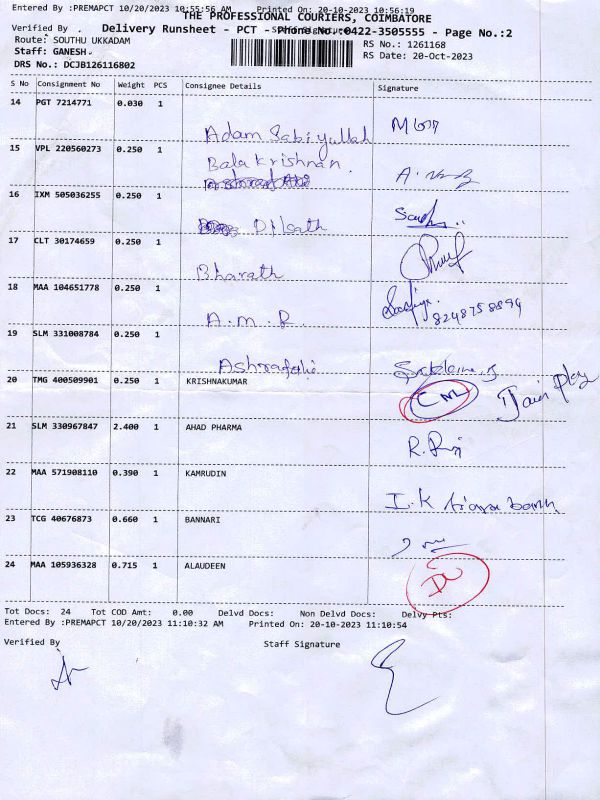 Entered By :PREMAPCT 10/20/2023 10:55:56 AM Printed On: 20-10-2023 10:56:19
THE PROFESSIONAL COURIERS, COIMBATORE
Verified By
Delivery Runsheet - PCT - Phone No.:0422-3505555 - Page No.:2
Route: SOUTHU UKKADAM
RS No.: 1261168
Staff: GANESH
RS Date: 20-Oct-2023
DRS No.: DCJB126116802
S No Consignment No Weight PCS Consignee Details Signature
14 PGT 7214771 0.030 1
Adam Sabiyullah
15 VPL 220560273 0.250 1
Balakrishnan
16 IXM 505036255 0.250 1
17 CLT 30174659 0.250 1
Bharath
18 MAA 104651778 0.250 1
8248758894
A.M.R
19 SLM 331008784 0.250 1
Ashrafalie
20 TMG 400509901 0.250 1 KRISHNAKUMAR
21 SLM 330967847 2.400 1 AHAD PHARMA
22 MAA 571908110 0.390 1 KAMRUDIN
I.K
23 TCG 40676873 0.660 1 BANNARI
24 MAA 105936328 0.715 1 ALAUDEEN
Tot Docs: 24 Tot COD Amt: 0.00 Delvd Docs: Non Delvd Docs: Delvy Pts:
Entered By :PREMAPCT 10/20/2023 11:10:32 AM Printed On: 20-10-2023 11:10:54
Verified By Staff Signature